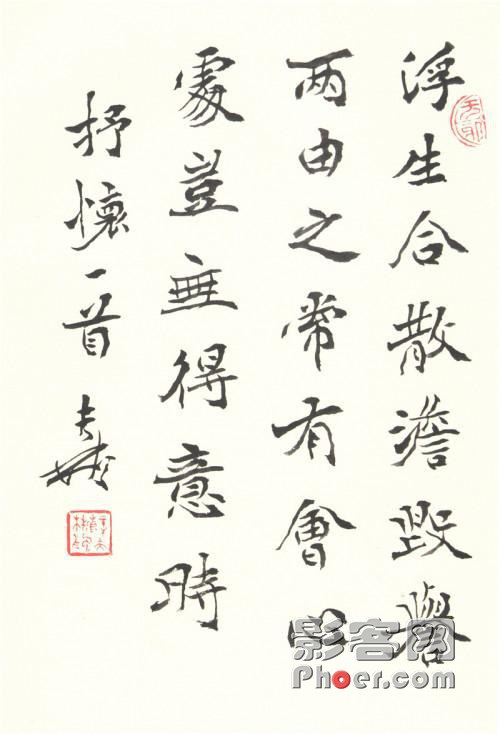 浮生合散澹毀譽
两由之常有會心
處豈無得意時
抒懷一首
影客网
Phoer.com